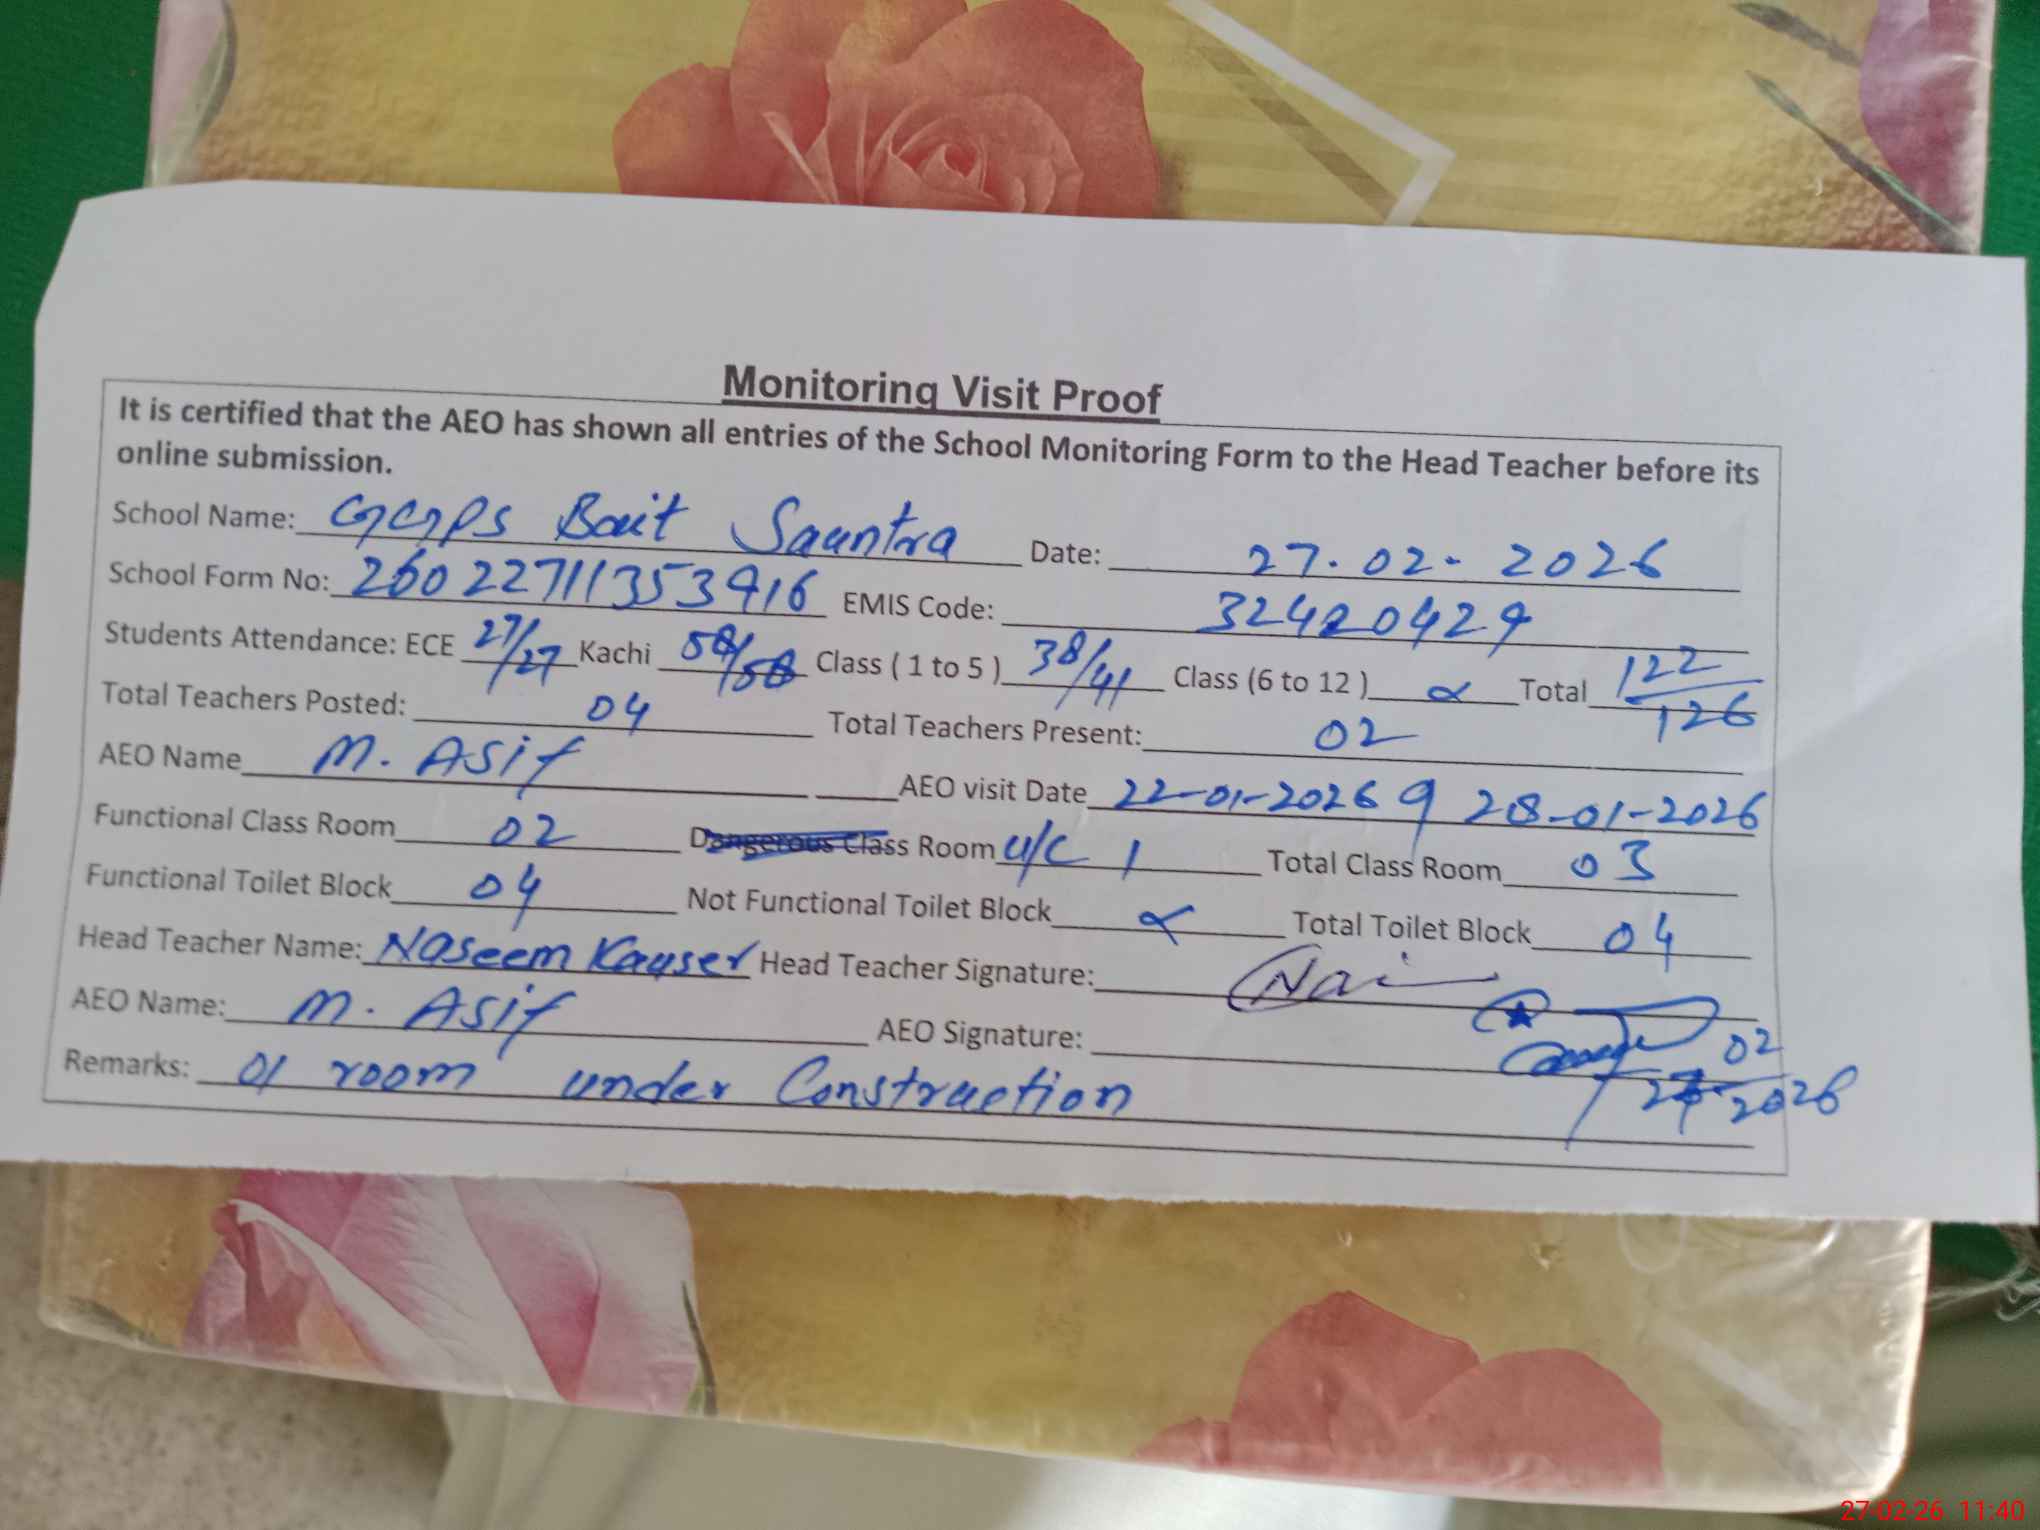 Monitoring Visit Proof
It is certified that the AEO has shown all entries of the School Monitoring Form to the Head Teacher before its
online submission.
School Name: GGPS Bait Sauntra Date: 27.02-2026
School Form No: 260227111353916 EMIS Code: 32420429
Students Attendance: ECE 27/27 Kachi 58/58 Class ( 1 to 5 ) 38/41 Class (6 to 12 ) Total 122/126
Total Teachers Posted: 04 Total Teachers Present: 02
AEO Name M. Asif AEO visit Date 22-01-2026 28-01-2026
Functional Class Room 02 Dangerous Class Room U/C 1 Total Class Room 03
Functional Toilet Block 04 Not Functional Toilet Block Total Toilet Block 04
Head Teacher Name: Naseem Kauser Head Teacher Signature:
AEO Name: M. Asif AEO Signature:
02
Remarks: 01 room under Construction 2026
27-02-26 11:40